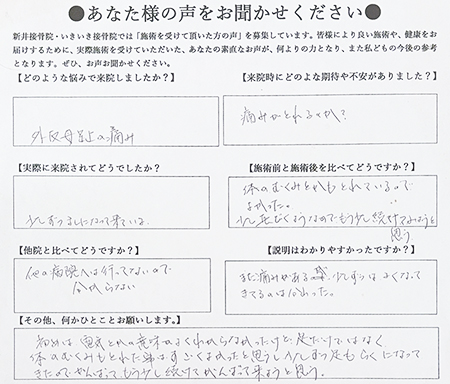 ●あなた様の声をお聞かせください●
新井接骨院・いきいき接骨院では「施術を受けて頂いた方の声」を募集しています。皆様により良い施術や、健康をお
届けするために、実際施術を受けていただいた、あなたの素直なお声が、何よりの力となり、また私どもの今後の参考
となります。ぜひ、お声お聞かせください。
【どのような悩みで来院しましたか？】
外反母趾の痛み
【来院時にどのよな期待や不安がありました？】
痛みがとれるのか？
【実際に来院されてどうでしたか？】
少しずつましになって来ている
【施術前と施術後を比べてどうですか？】
体のむくみとかもとれているので
よかった。
少し歩くようなのでもう少し続けてみようと
思う
【他院と比べてどうですか？】
他の病院へは行ってないので
分からない
【説明はわかりやすかったですか？】
まだ痛みがある 少しずつはよくなって
きてるのは分かった。
【その他、何かひとことお願いします。】
初めは とかの意味がよくわからなかったけど、足だけではなく
体のむくみもとれた事はすごくよかったと思うし少しずつ足もらくになって
きたのでがんばってもう少し続けてがんばって来ようと思う。